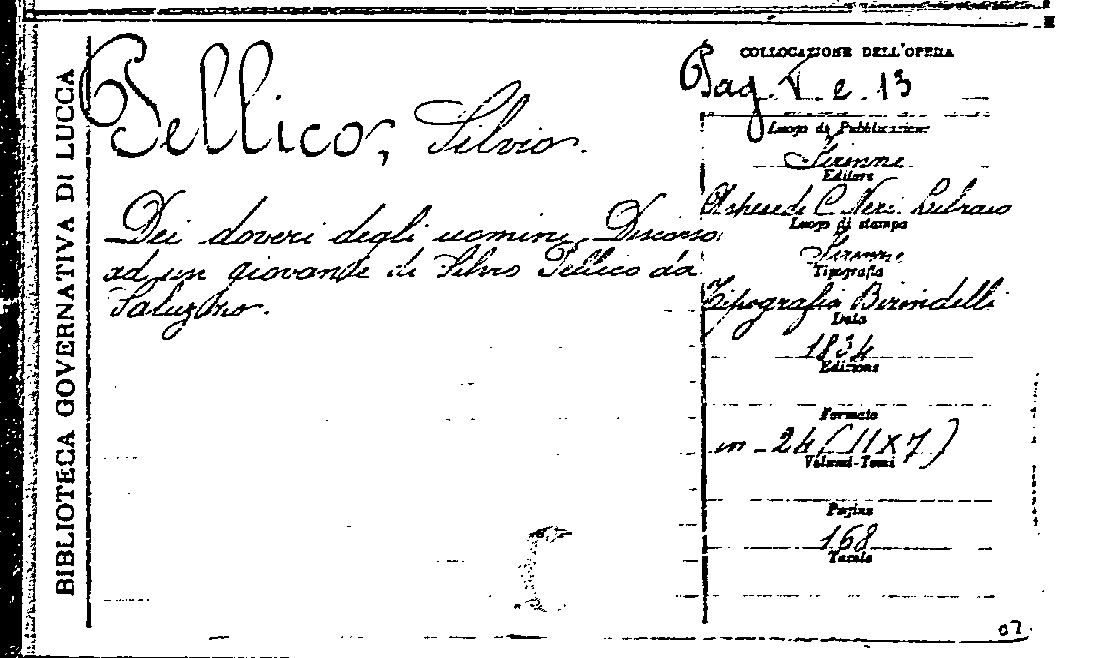 BIBLIOTECA GOVERNATIVA DI LUCCA
Pellico, Silvio.
Dei doveri degli uomini Discorso
ad un giovane di Silvio Pellico da
Saluzzo.
COLLOCAZIONE DELL'OPERA
Pag. V. e. 13
Luogo di Pubblicazione
Firenze
Editore
A spese di C. Neri Libraio
Luogo di stampa
Firenze
Tipografia
Tipografia Birindelli
Data
1834
Edizione
Formato
in-24 (11x7)
Volumi-Tomi
Pagine
168
Tavole
07